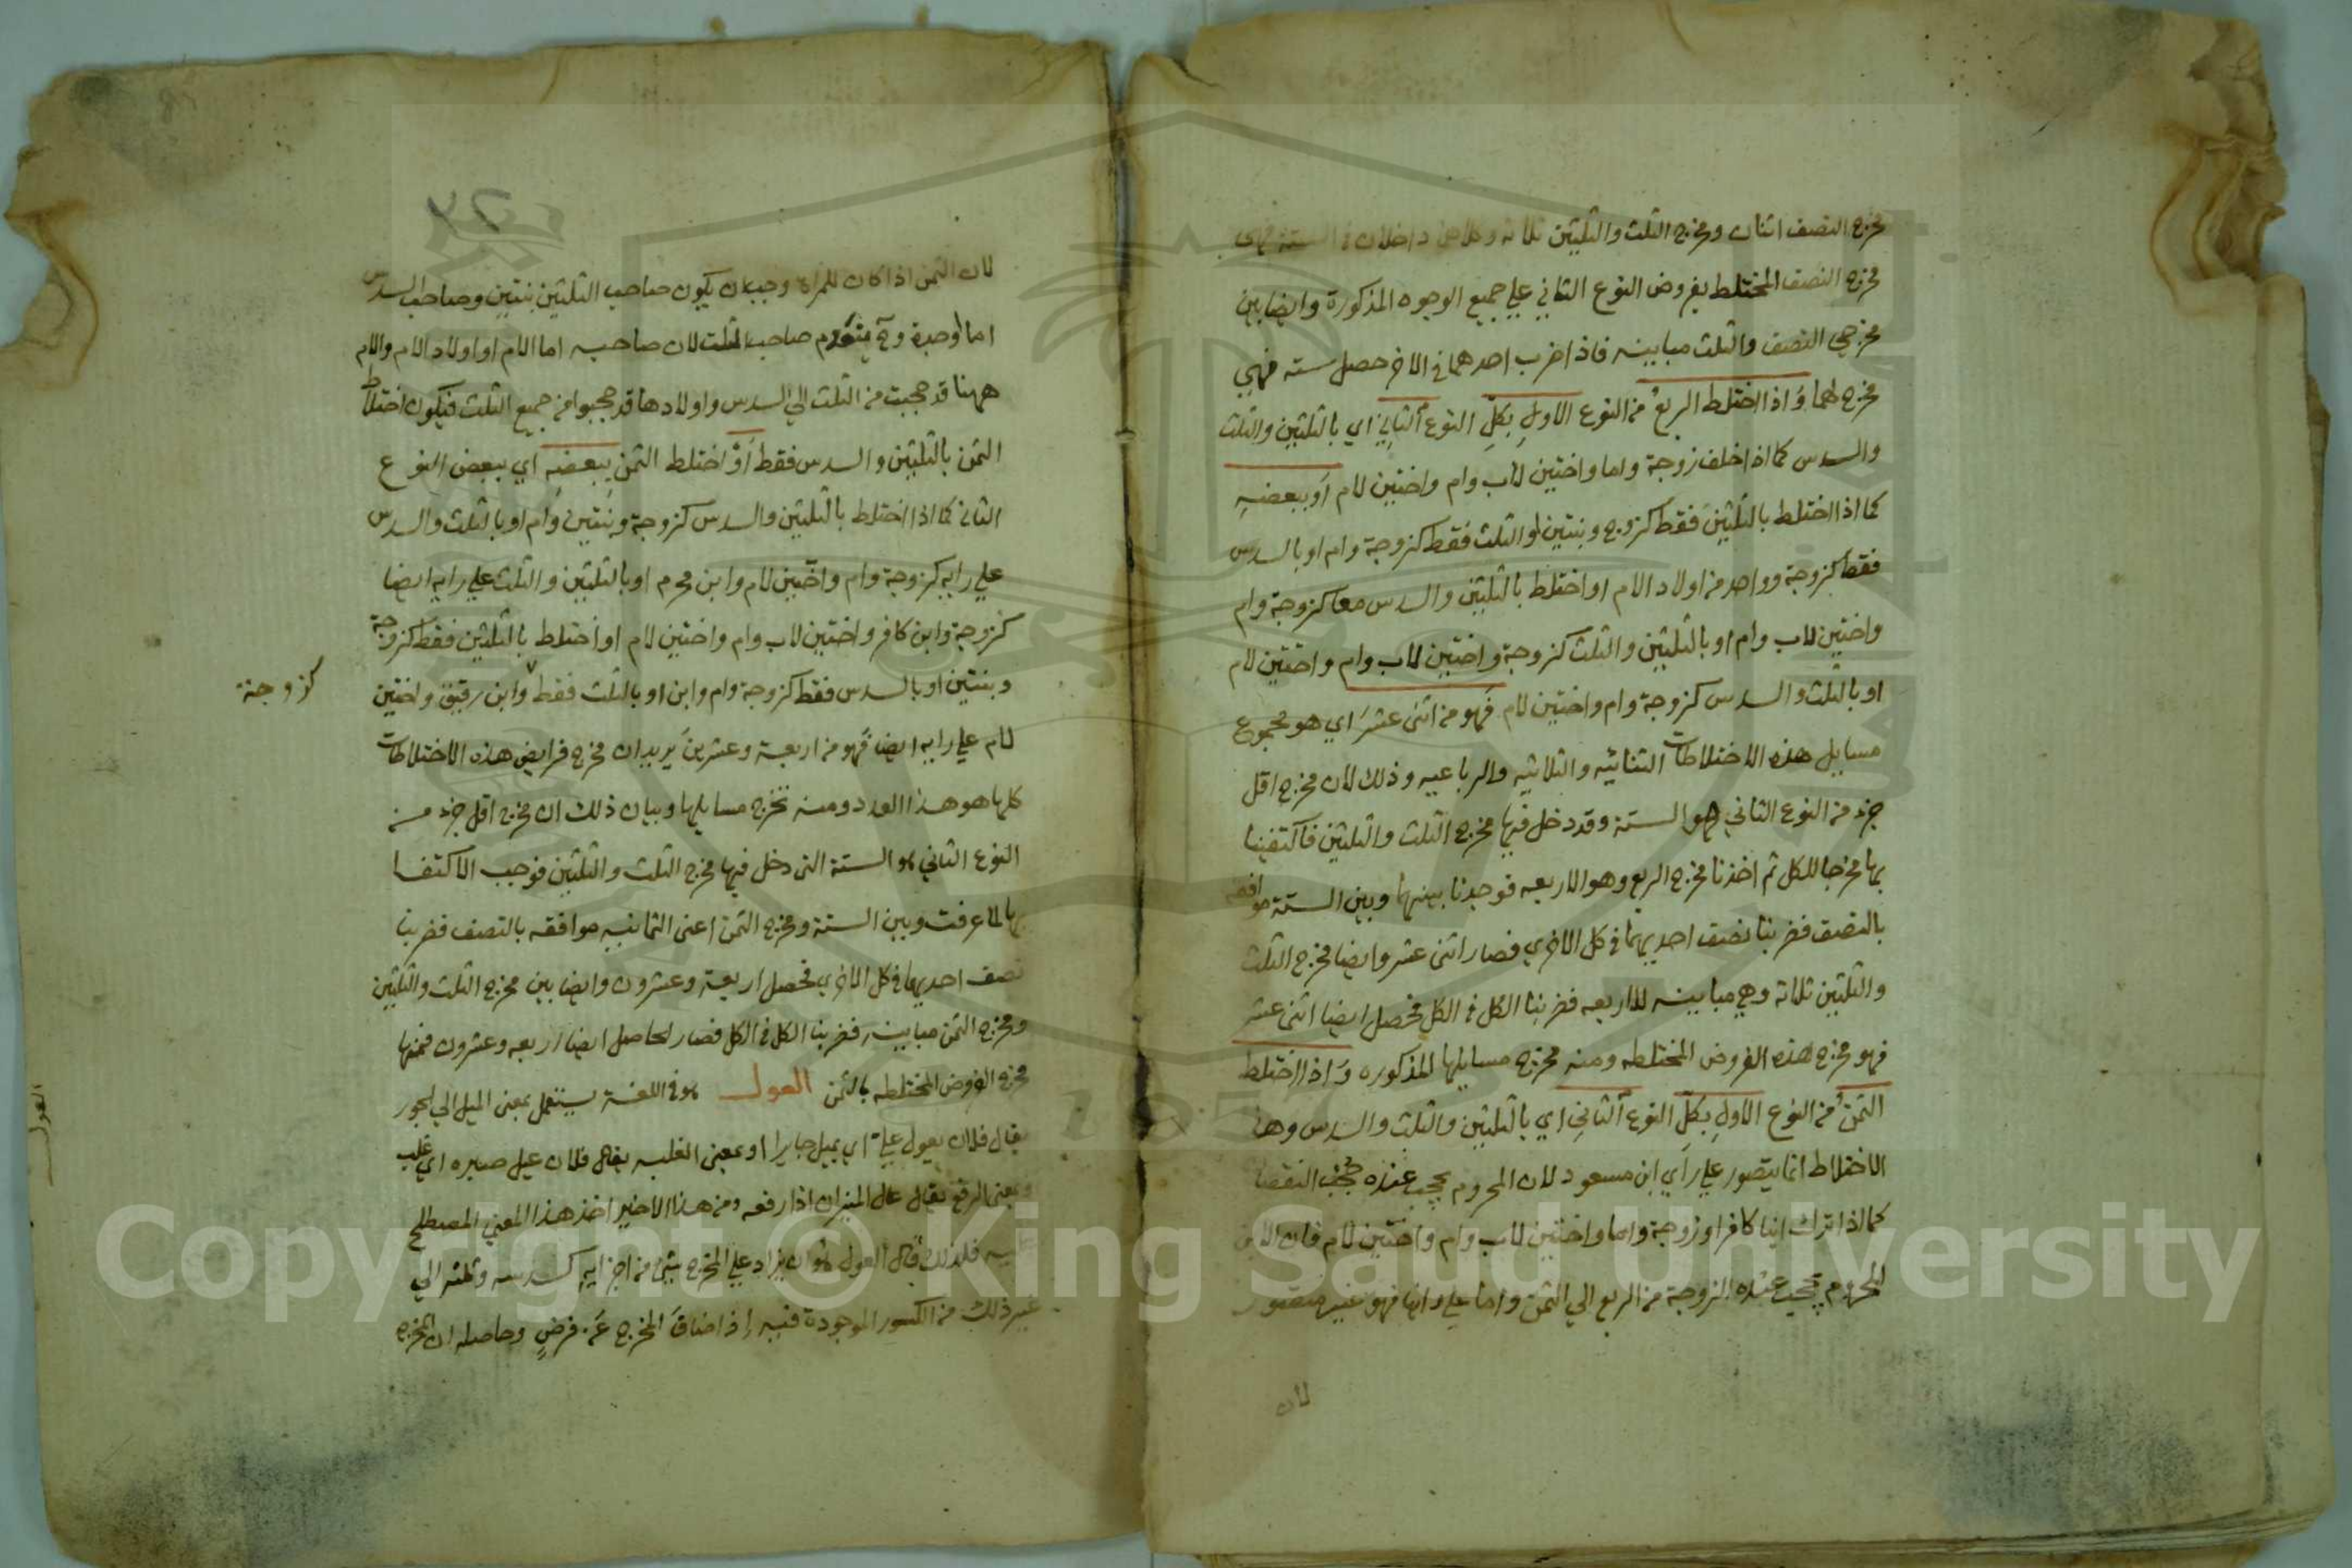 مخرج النصف اثنان ومخرج الثلث والثلثين ثلاثة وكلاهما داخلان في الستة فهي
مخرج النصف المختلط بفروض النوع الثاني علي جميع الوجوه المذكورة وايضا بين
مخرجي النصف والثلث مباينه فاذا ضرب احدهما في الاخر حصل سته فهي
مخرج لهما وَاذا اختلط الربعُ من النوع الاولِ بكلِّ النوع الثانِي اي بالثلثين والثلث
والسدس كما اذا خلف زوجة واما واختين لاب وام واختين لام اَو ببعضهِ
كما اذا اختلط بالثلثين فقط كزوج وبنتين او الثلث فقط كزوجة وام او بالسدس
فقط كزوجة وواحد من اولاد الام او اختلط بالثلثين والسدس معا كزوجة وام
واختين لاب وام او بالثلثين والثلث كزوجة واختين لاب وام واختين لام
او بالثلث والسدس كزوجة وام واختين لام فَهو من اثنى عشرَ اي هو مجموع
مسايل هذه الاختلاطات الثنائيه والثلاثيه والرباعيه وذلك لان مخرج اقل
جزء من النوع الثاني هو الستة وقد دخل فيها مخرج الثلث والثلثين فاكتفينا
بها مخرجا للكل ثم اخذنا مخرج الربع وهو الاربعه فوجدنا بينها وبين الستة موافقه
بالنصف فضربنا نصف احديهما في كل الاخري فصار اثنى عشر وايضا مخرج الثلث
والثلثين ثلاثة وهي مباينه للاربعه فضربنا الكل في الكل فحصل ايضا اثنى عشر
فهو مخرج هذه الفروض المختلطه ومنه مخرج مسايلها المذكوره وَاذا اختلط
الثمنُ من النوع الاولِ بكلّ النوع الثانِي اي بالثلثين والثلث والسدس وهذا
الاختلاط انما يتصور علي رأي ابن مسعود لان المحروم يحجب عنده حجب النقصان
كما اذا ترك ابنا كافرا وزوجة واما واختين لاب وام واختين لام فان الابن
المحروم يحجب عنده الزوجة من الربع الي الثمن واما علي رأينا فهو غير متصور
لان
لان الثمن اذا كان للمراة وجب ان يكون صاحب الثلثين بنتين وصاحب السدس
اما او جدة وح ينعدم صاحب الثلث لان صاحبه اما الام او اولاد الام والام
ههنا قد حجبت من الثلث الي السدس واولادها قد حجبوا من جميع الثلث فيكون اختلاط
الثمن بالثلثين والسدس فقط اَوْ اختلط الثمن ببعضه اي ببعض النوع
الثاني كما اذا اختلط بالثلثين والسدس كزوجة وبنتين وام او بالثلث والسدس
علي رايه كزوجة وام واختين لام وابن محرم او بالثلثين والثلث علي رايه ايضا
كزوجة وابن كافر واختين لاب وام واختين لام او اختلط بالثلثين فقط كزوجة
وبنتين او بالسدس فقط كزوجة وام وابن او بالثلث فقط وابن رقيق واختين
كزوجة
لام علي رايه ايضا فَهو من اربعة وعشرينَ يريد ان مخرج فرايض هذه الاختلاطات
كلها هو هذا العدد ومنه تخرج مسايلها وبيان ذلك ان مخرج اقل جزء من
النوع الثاني هو الستة التى دخل فيها مخرج الثلث والثلثين فوجب الاكتفا
بها لما عرفت وبين الستة ومخرج الثمن اعنى الثمانيه موافقه بالنصف فضربنا
نصف احديهما في كل الاخري فحصل اربعة وعشرون وايضا بين مخرج الثلث والثلثين
ومخرج الثمن مباينة فضربنا الكل في الكل فصار الحاصل ايضا اربعه وعشرون فمنها
مخرج الفروض المختلطه بالثمن العول هو في اللغة يستعمل بمعنى الميل الي الجور
يقال فلان يعول علي اي يميل جايرا او بمعنى الغلبه يقال فلان عيل صبره اي غلب
وبمعنى الرفع يقال عال الميزان اذا رفعه ومن هذا الاخير اخذ هذا المعني المصطلح
عليه فلذلك قال العول هو ان يزاد علي المخرج شئ من اجزايه كسدسه وثلثه الي
غير ذلك من الكسور الموجودة فيه اِذا ضاقَ المخرج عَن فرضٍ وحاصله ان المخرج
العول